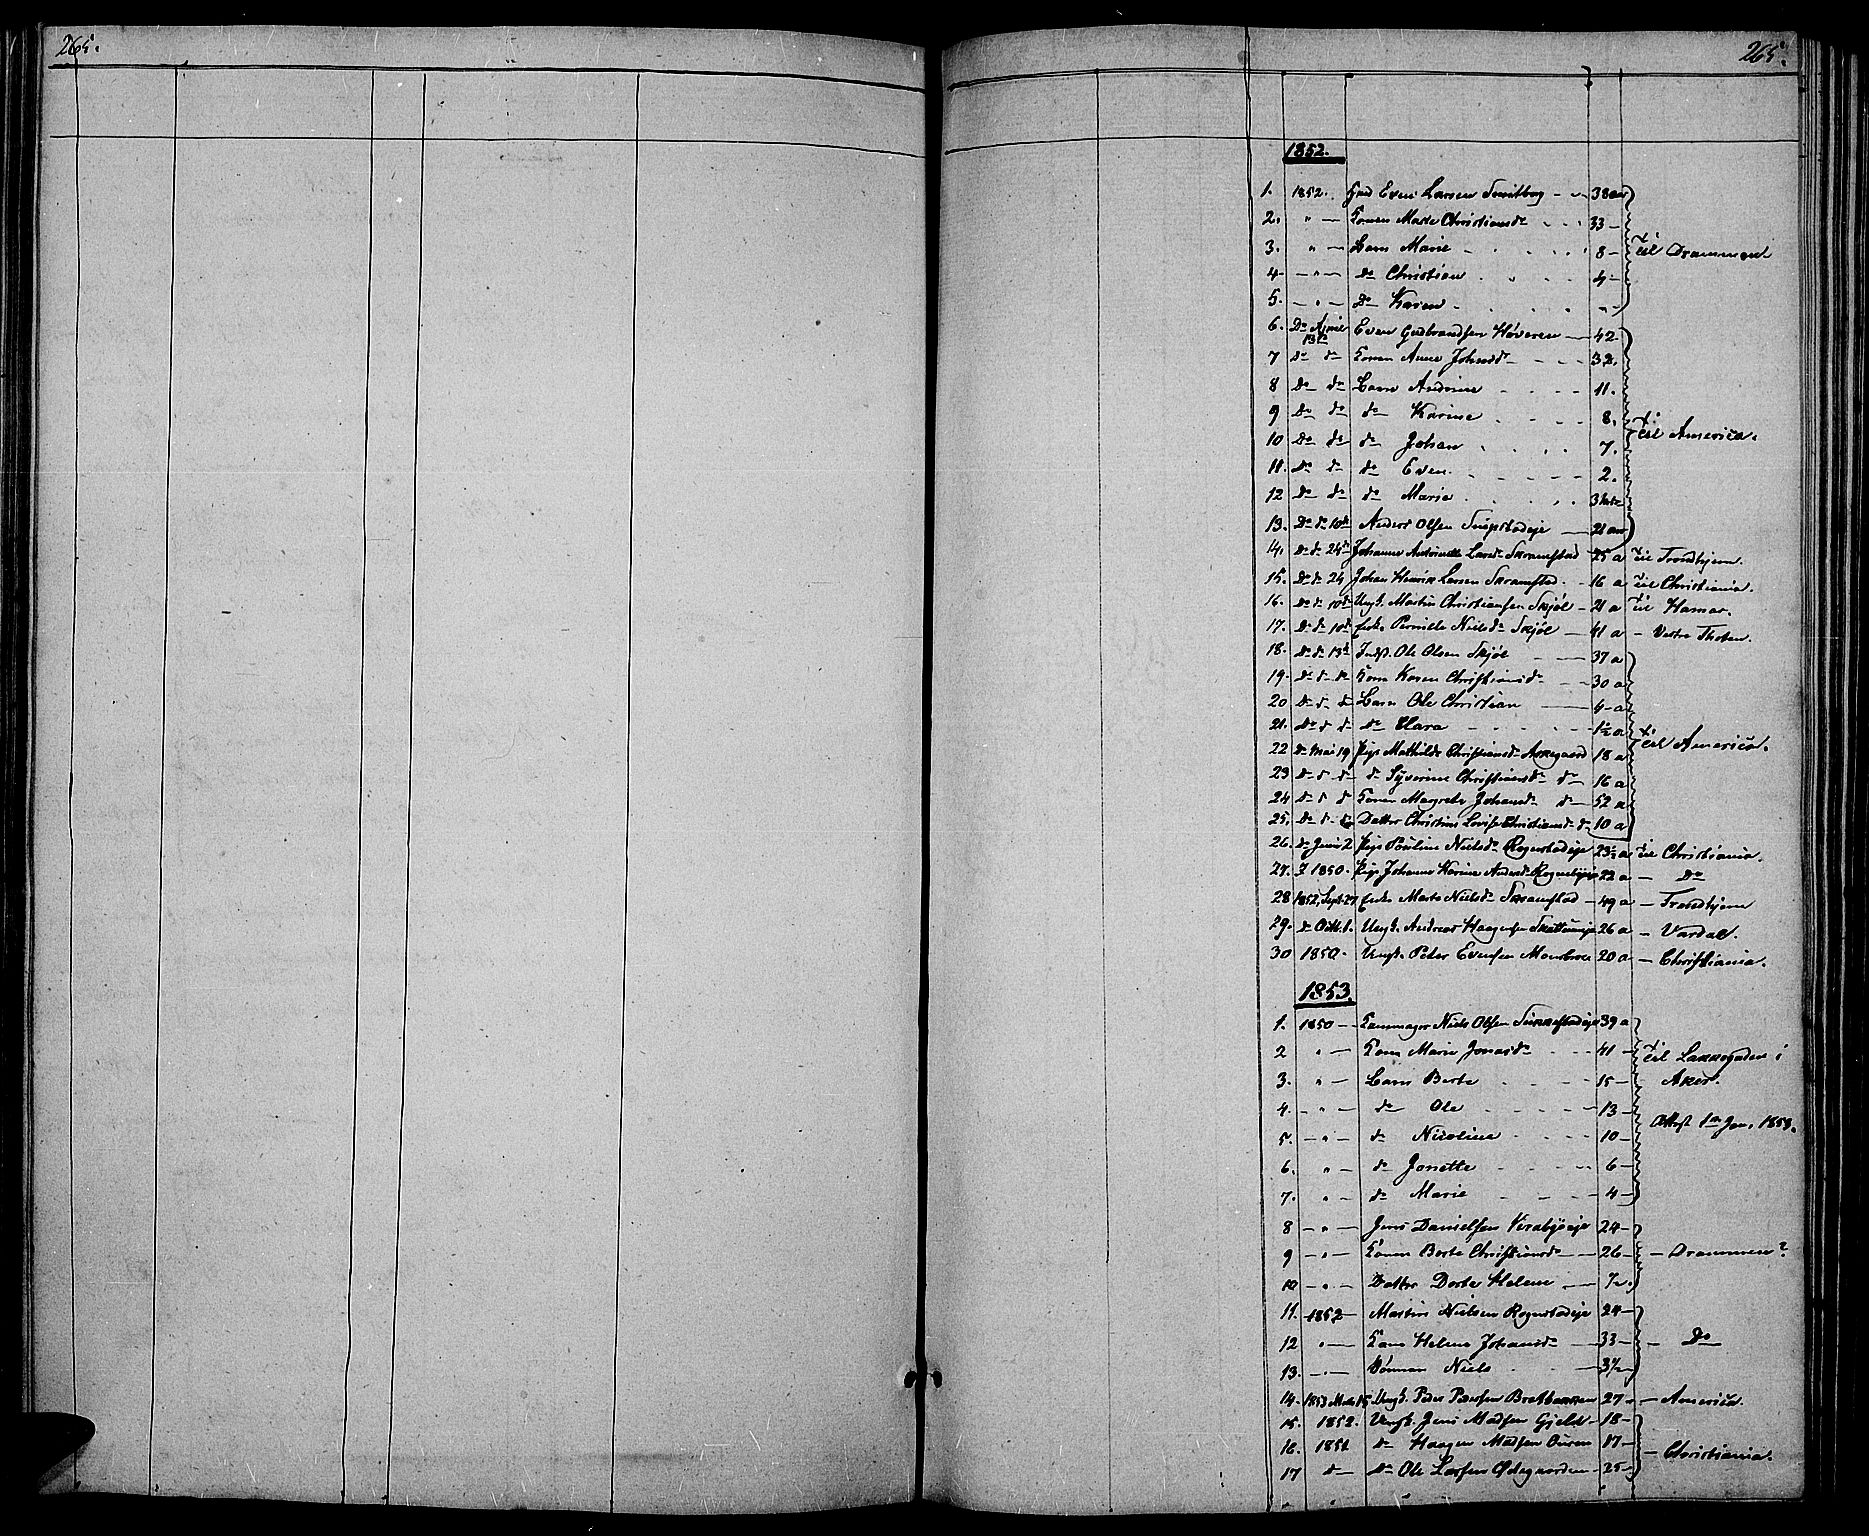 265.
265.
1852.
1. 1852. Even Larsen 38 aar
2. " — Konen Marte Christiansdr 33 —
3. " — Barn Marie 8 — Til Drammen
4 — " — Do Christian 4 —
5. — " — Do Karen
6. Do April 13de Even Gudbrandsen Høveren — 42
7 Do do Konen Anne Johnsdr 32.
8 Do do Barn Andrine 11.
9 Do do do Karine 8.
Til America.
10 Do do do Johan 7.
11. Do do do Even 2.
12 Do do do Marie 3
13. Do do 10de Anders Olsen 21 aar
14. Do do 24de Johanne Larsdr Skramstad 25 a Til Trondhjem.
15. Do do 24 Johan Henrik Larsen Skramstad. 16 a Til Christiania.
16. Do do 10de Ungk. Martin Christiansen Skjøl — 21 a Til Hamar.
17. Do do 10de Enke Pernille Nielsdr Skjøl — 41 a — Vestre Thoten.
18. Do do 13de Indst. Ole Olsen Skjøl — 37 a
19. Do do do Kone Karen Christiansdr 30 a
20 Do do do Barn Ole Christian — 4 a
21. Do do do do Clara 1½ a
Til America.
22 Do Mai 19 Pige Mathilde Christiansdr 18 a
23 Do do do do Syverine Christiansdr do 16 a
24 Do do do Konen Margrete Johansdr do 52 a
25. Do do do Datter Christine Lovise Christiansdr do 10 a
26. Do Juni 2 Pige Pauline Nielsdr Rognstadeje 23½ a Til Christiania.
27. I 1850. Pige Johanne Karine Andersdr 22 a — Do
28 1852, Sept. 27 Enke Marte Nielsdr Skramstad — 49 a — Trondhjem
29. Do Octb. 1. Ungk. Andreas Haagensen 26 a — Vardal.
30 1850. Ungk. Peter Evensen 20 a — Christiania.
1853.
1. 1850 — Niels Olsen 39 a
2 " — Kone Marie Jonasdr 41 — Til Lakkegaden i
3. " — Barn Berte 15 — Aker.
4. — " — do Ole 13 —
Attest 1ste Jan. 1853.
5. — " — do Nicoline 10 —
6. " — do Jonette 6 —
7. " — do Marie 4 —
8 — " — Jens Danielsen 24 —
9 — " — Konen Berte Christiansdr 26 — Drammen?
10 — " — Datter Dorte Helene ½.
11. 1852 — Martin Nielsen Rognstadeje 24 —
12 " — Kone Helene Johansdr 33 — Do
13. — " — Sønnen Niels 3½
14. 1853 Marts 15 Ungk. Peder Paulsen Brettbakken 27 — America.
15. 1852. Ungk. Jens Madsen 18 —
16. 1851 do Haagen Madsen 17 — Christiania.
17 do Do Ole Larsen Ødegaarden 25 —